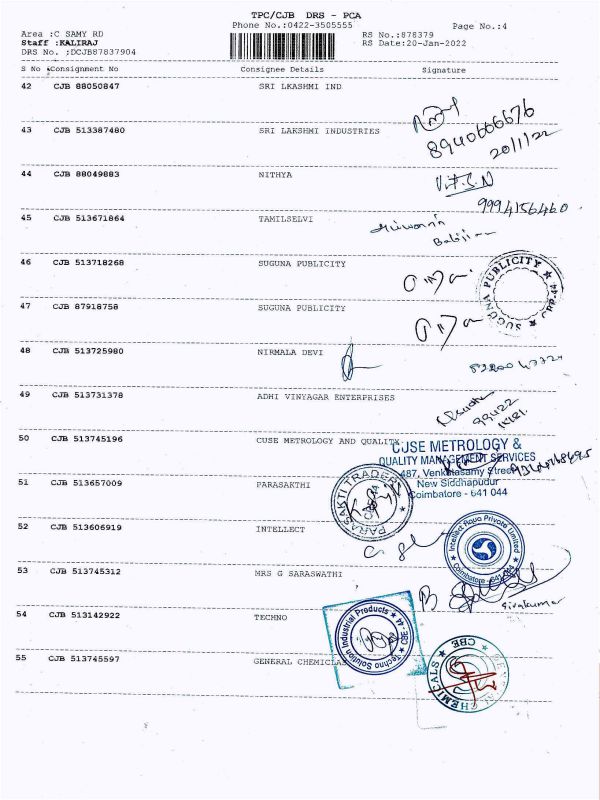 TPC/CJB DRS - PCA
Phone No.:0422-3505555
Page No.:4
Area :C SAMY RD
RS No.:878379
Staff :KALIRAJ
RS Date:20-Jan-2022
DRS No. :DCJB87837904
S No Consignment No Consignee Details Signature
42 CJB 88050847 SRI LKASHMI IND
8940666676
43 CJB 513387480 SRI LAKSHMI INDUSTRIES
20/1/22
44 CJB 88049883 NITHYA
9994156460
45 CJB 513671864 TAMILSELVI
46 CJB 513718268 SUGUNA PUBLICITY
SUGUNA PUBLICITY
47 CJB 87918758 SUGUNA PUBLICITY
48 CJB 513725980 NIRMALA DEVI
49 CJB 513731378 ADHI VINYAGAR ENTERPRISES
50 CJB 513745196 CUSE METROLOGY AND QUALITY
CUSE METROLOGY &
QUALITY MANAGEMENT SERVICES
487, Venkatasamy Street
New Siddhapudur
Coimbatore - 641 044
51 CJB 513657009 PARASAKTHI
PARASAKTI TRADERS
52 CJB 513606919 INTELLECT
Intellect Aqua Private Limited
Coimbatore - 641 044
53 CJB 513745312 MRS G SARASWATHI
Sivakumar
54 CJB 513142922 TECHNO
Techno Solution Industrial Products
CBE - 44
55 CJB 513745597 GENERAL CHEMICLAS
CHEMICALS
CBE